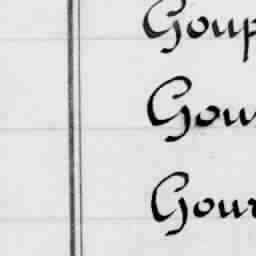 Goup
Gou
Gour